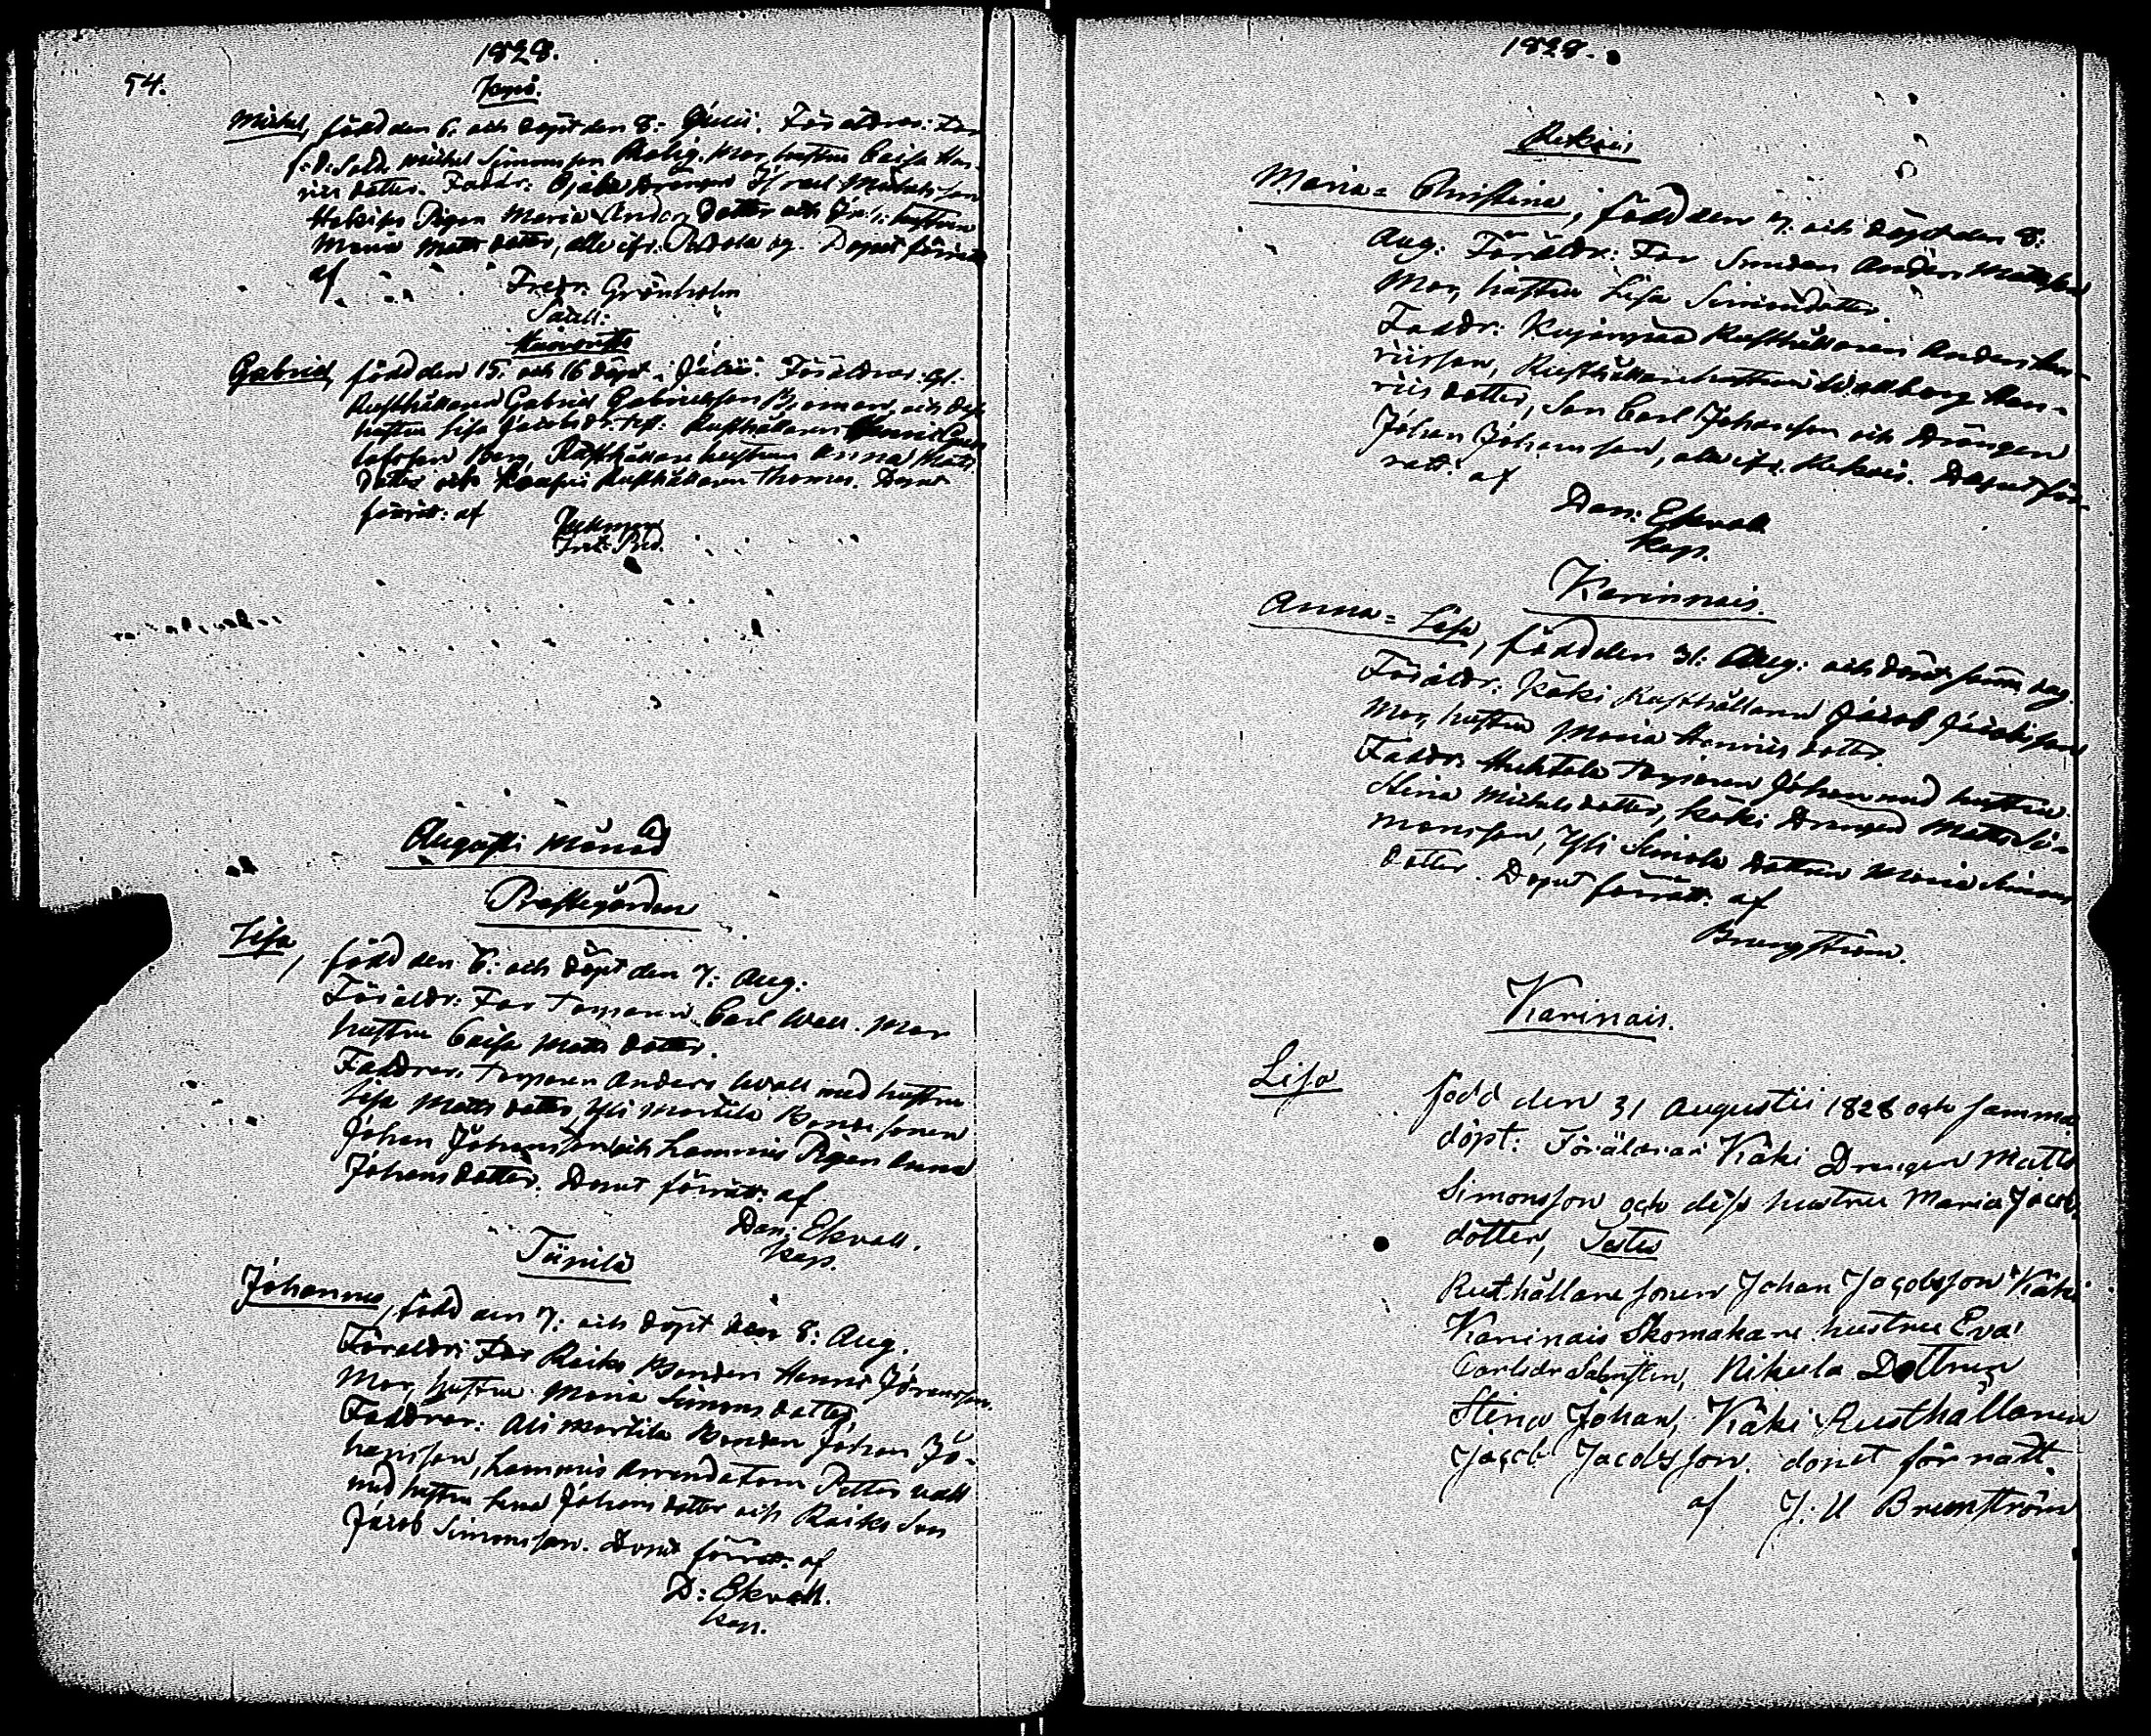 54.
1828.
Michel, född den 6. och döpt den 8: Julii. Föräldrar: Far
f:d: Sold. Michel Simonsson Mor, hustru Caisa Hen-
rics dotter. Faddr: Drängen Israel Michelsson
Pigan Maria Anders dotter och hustrun
Maria Matts dotter, alla ifr: Dopet förrätt
af
Fredr. Grönholm
Sacell:
Gabriel, född den 15. och 16 döpt i Julii. Föräldrar:
Rusthållaren Gabriel Gabrielsson och dess
hustru Lisa Jacobs dr. Test: Rusthållaren
Rusthållare hustrun Anna Matts
dotter och Rusthållaren Thomas. Dopet
förrätt: af
Augusti Månad
Prestegården
Lisa, född den 6: och döpt den 7: Aug:
Föräldr: Far Torparen Carl Wall. Mor
hustru Caisa Matts dotter.
Faddrar: Torparen Anders Wall med hustru
Lisa Matts dotter, Yli Mortila Bonde sonen
Johan Johansson och Lammis Pigan Anna
Johans dotter. Dopet förrätt: af
Dan: Ekvall.
Kap.
Johannes, född den 7: och döpt den 8: Aug.
Föräldr: Far Raiko Bonden Henric Jöransson.
Mor, hustru Maria Simons dotter.
Faddrar: Ali Mortila Bonden Johan Jo-
hansson, Lammis Arrendatorn Petter Wall
med hustru Lena Johans dotter och Raiko Son
Jacob Simonsson. Dopet förrätt: af
D: Ekvall.
Kap.
1828.
Maria=Christina, född den 7: och döpt den 8:
Aug: Föräldr: Far Smeden Anders Mattsson
Mor, hustru Lisa Simonsdotter.
Faddr: Rusthållaren Anders Hen-
ricsson, Rusthållarehustrun Wallborg Hen-
rics dotter, Son Carl Johansson och Drängen
Johan Johansson, alla ifr. Dopet för-
rätt: af
Dan: Ekvall
Kap.
Karinnais.
Anna=Lisa, född den 31: Aug: och döpt samma dag.
Föräldr: Käki Rusthållaren Jacob Jacobsson
Mor, hustru Maria Henrics dotter.
Faddr: Huhtala Torparen Johan med hustru
Stina Michels dotter, Käki Drängen Matts Si-
monsson, Yli Simola Dottren Maria Simons
dotter. Dopet förrätt: af
Brunström.
Karinais.
Lisa född den 31 Augustii 1828 och samma
döpt: Föräldrar Käki Drengen Matts
Simonsson och dess hustru Maria Jacobs
dotter, Testes
Rusthållare sonen Johan Jacobsson Käki
Karinais Skomakare hustru Eva
Carlsdr Nikula Dottren
Stina Johan, Käki Rusthållaren
Jacob Jacobsson. dopet förrätt.
af J: U Brunström